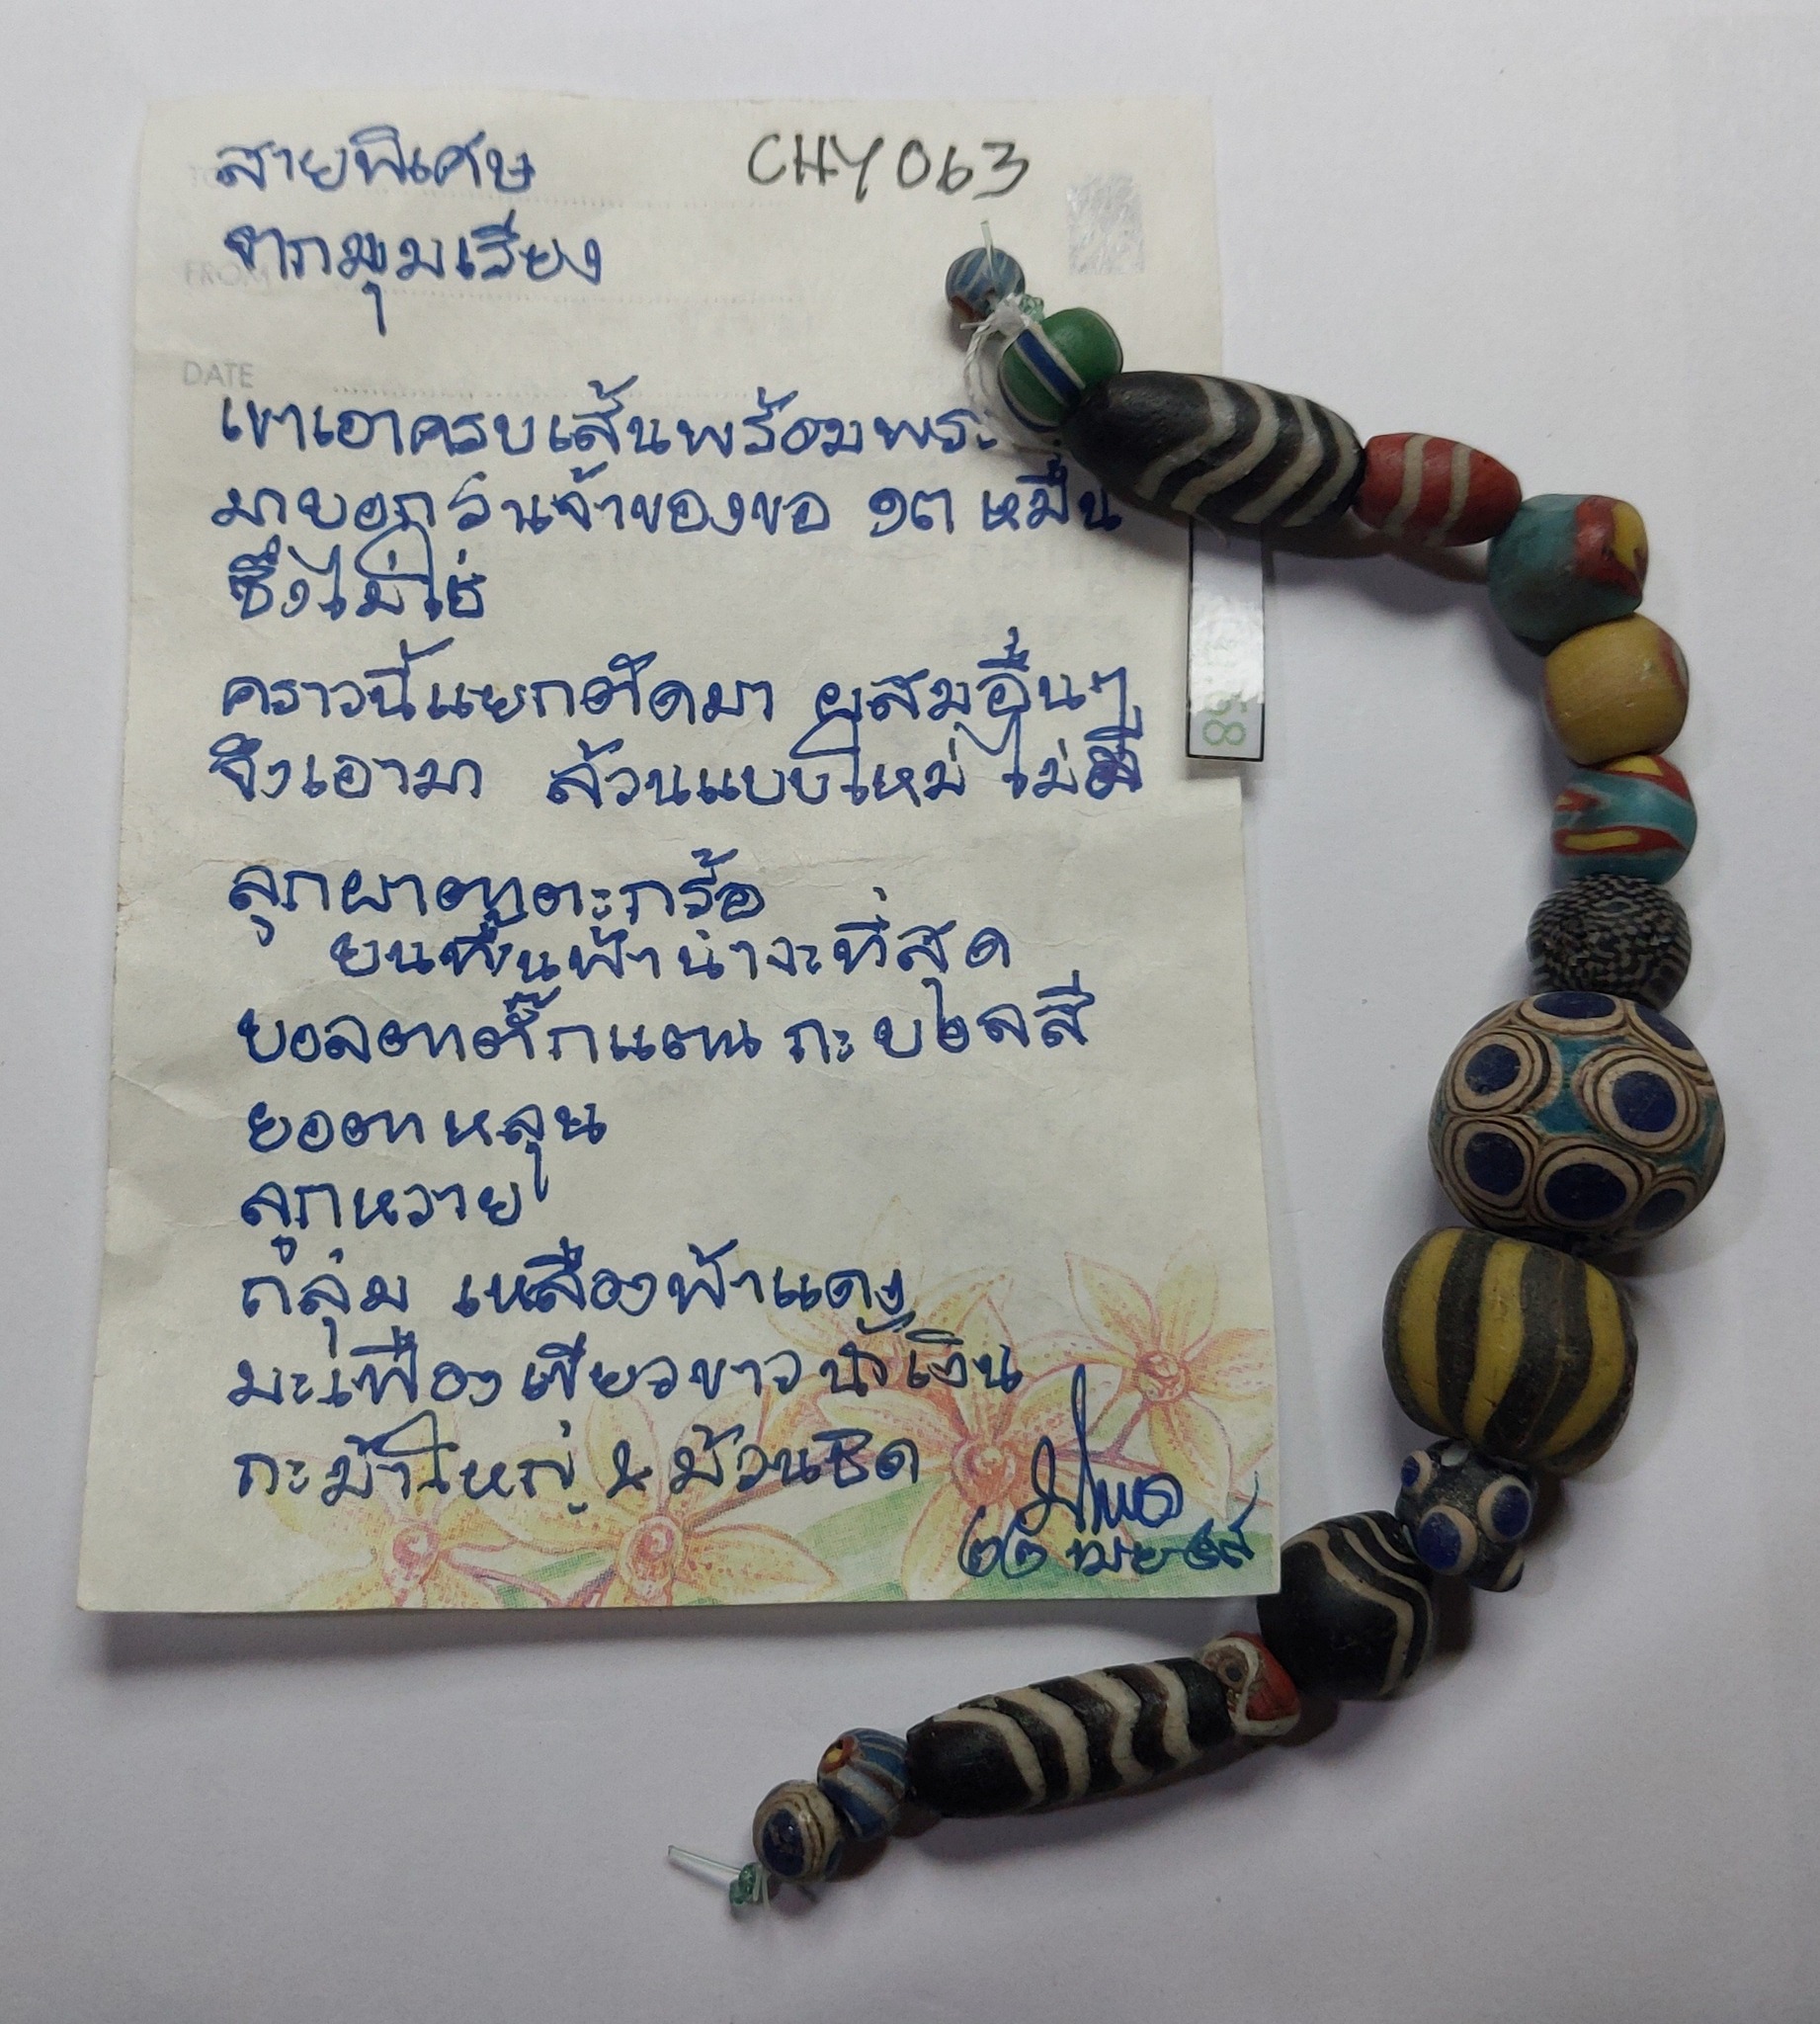 สายพิเศษ
CHY063
จากพุมเรียง
FROM
DATE
เขาเอาครบเส้นพร้อมพระ
มาบอกว่นเจ้าของขอ ๑๓ หมื่น
ซึ่งไม่ไช่
คราวนี้แยกตัดมา ผสมอื่นๆ
จึงเอามา ล้วนแบบใหม่ ไม่มี
ลูกผาตาตะกร้อ
บนพื้นฟ้าน่าจะที่สุด
ยอตาหลุน
ลูกหวาย
กลุ่ม เหลืองฟ้าแดง
มะเฟืองเขียวขาวน้ำเงิน
๒๒ เมย
58